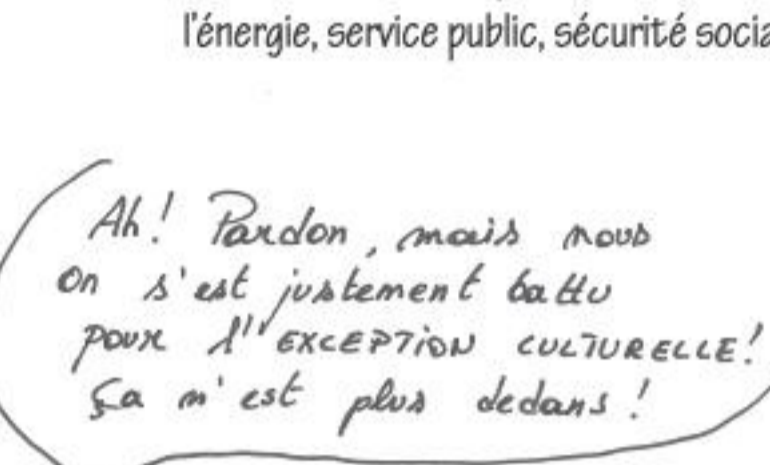 l'énergie, service public, sécurité socia
Ah! Pardon, mais nous
on s'est justement battu
pour l'"EXCEPTION CULTURELLE!
Ça n'est plus dedans!